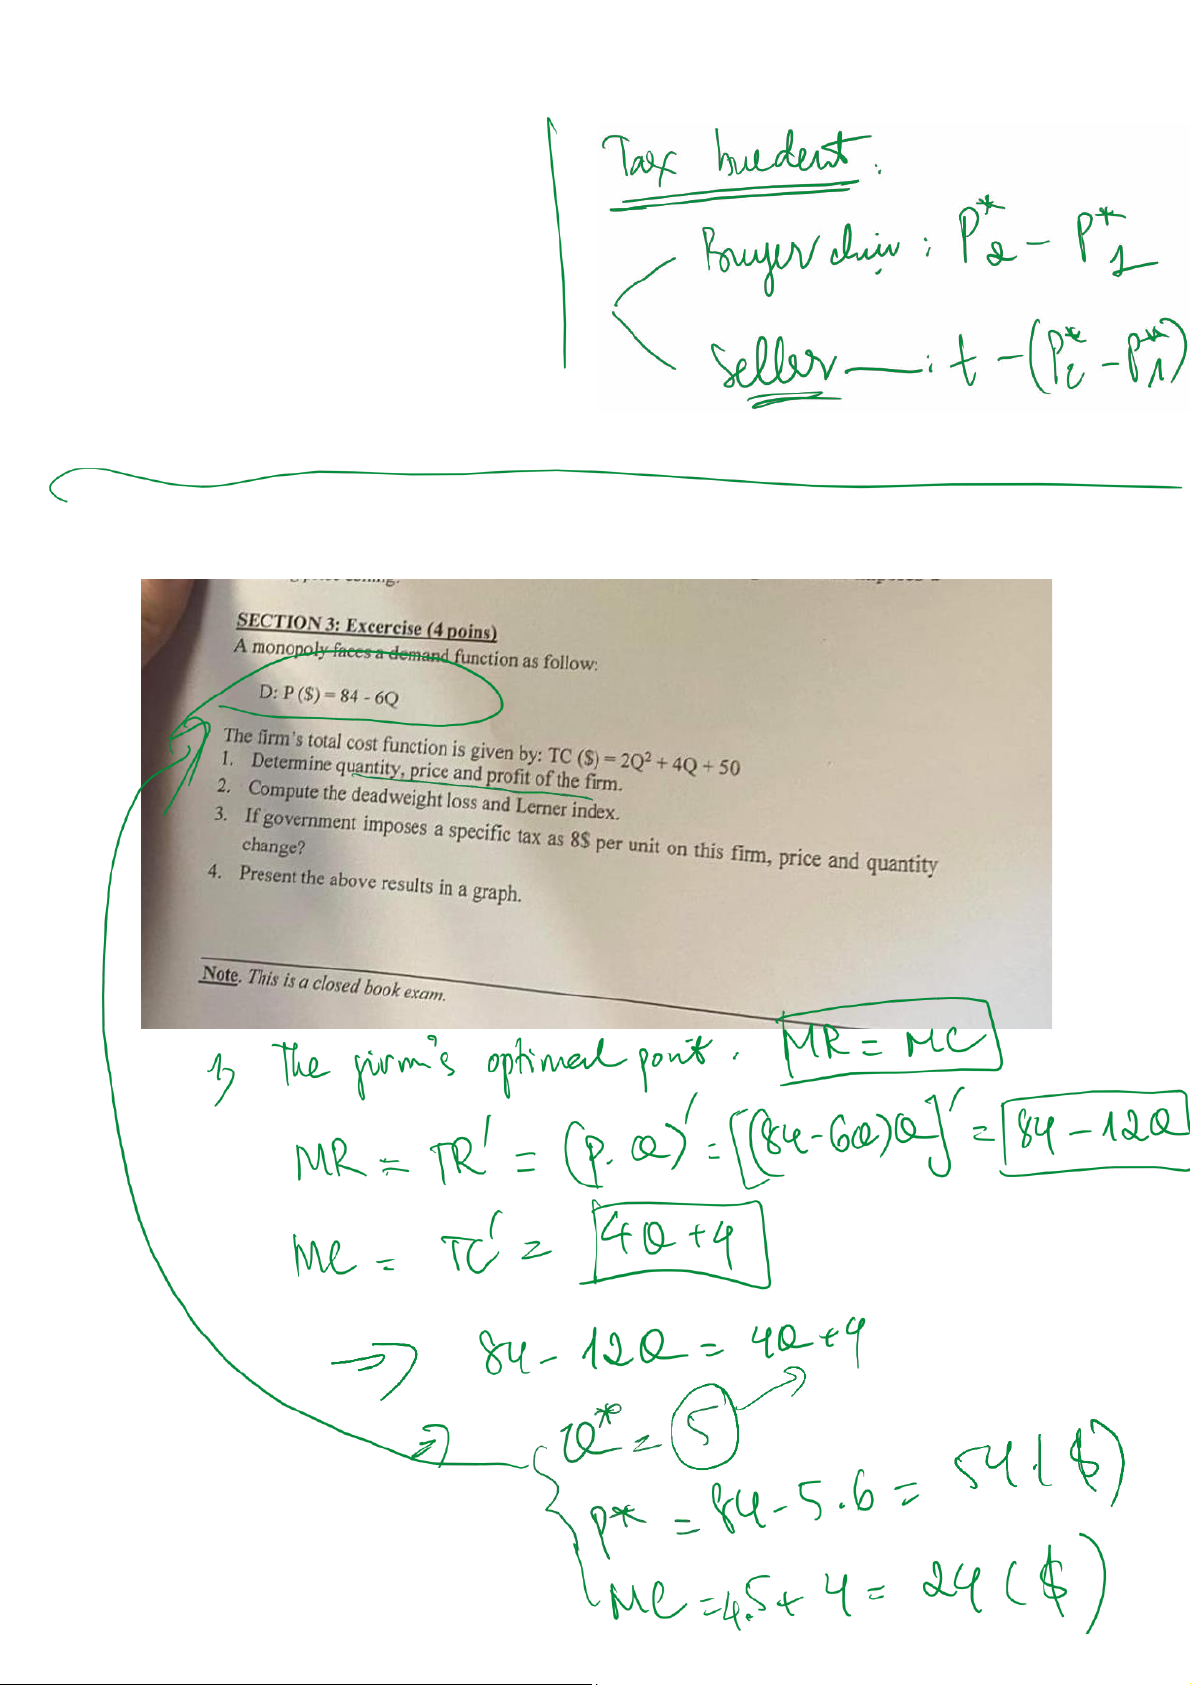 Tax burdent:
Buyer chịu: P*2 - P*1
Seller —: t - (P*2 - P*1)
SECTION 3: Excercise (4 poins)
A monopoly faces a demand function as follow:
D: P ($) = 84 - 6Q
The firm's total cost function is given by: TC ($) = 2Q² + 4Q + 50
1. Determine quantity, price and profit of the firm.
2. Compute the deadweight loss and Lerner index.
3. If government imposes a specific tax as 8$ per unit on this firm, price and quantity
change?
4. Present the above results in a graph.
Note. This is a closed book exam.
1) The firm's optimal point: MR = MC
MR = TR' = (P.Q)' = [(84-6Q)Q]' = 84-12Q
MC = TC' = 4Q+4
=> 84-12Q = 4Q+4
=> Q* = 5
P* = 84-5.6 = 54 ($)
MC = 4.5+4 = 24 ($)